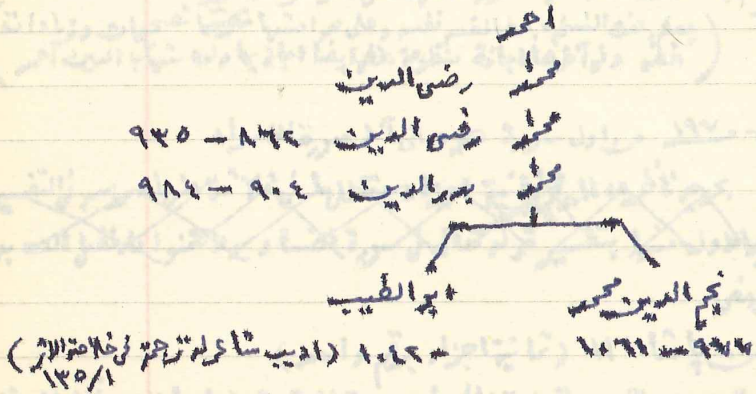 احمد
محمد رضي الدين
محمد رضي الدين ٨٦٢ - ٩٣٥
محمد بدر الدين ٩٠٤ - ٩٨٤
نجم الدين محمد ابو الطيب
٩٧٧ - ١٠٦١ - ١٠٤٢ (اديب شاعر له ترجمة في خلاصة الاثر
١٣٥/١)